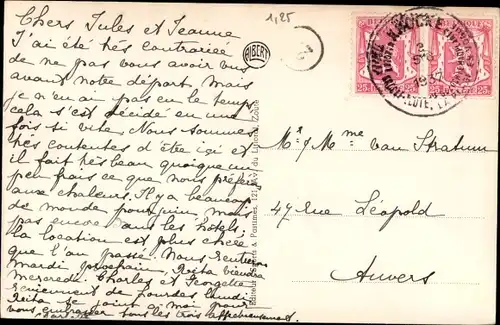 Chers Jules et Jeanne
J'ai été très contrariée
de ne pas vous avoir vus
avant notre départ. Mais
je n'en ai pas eu le temps
cela s'est décidé en une
fois si vite. Nous sommes
très contentes d'être ici et
il fait très beau quoique un
peu frais ce que nous préfér
aux chaleurs. Il y a beaucoup
de monde pour juin mais
pas encore dans les hôtels.
la location est plus chère
que l'an passé. Nous rentrons
Mardi prochain, Reita viendra
Mercredi. Charles et Georgette
reviennent de Lourdes lundi
Reita se joint à moi pour
vous embrasser tous les trois affectueusement.
1,25
ALBERT
15
KNOKKE
1947
BELG
25 25
Mr & Mme van Stratum
47 rue Léopold
Anvers